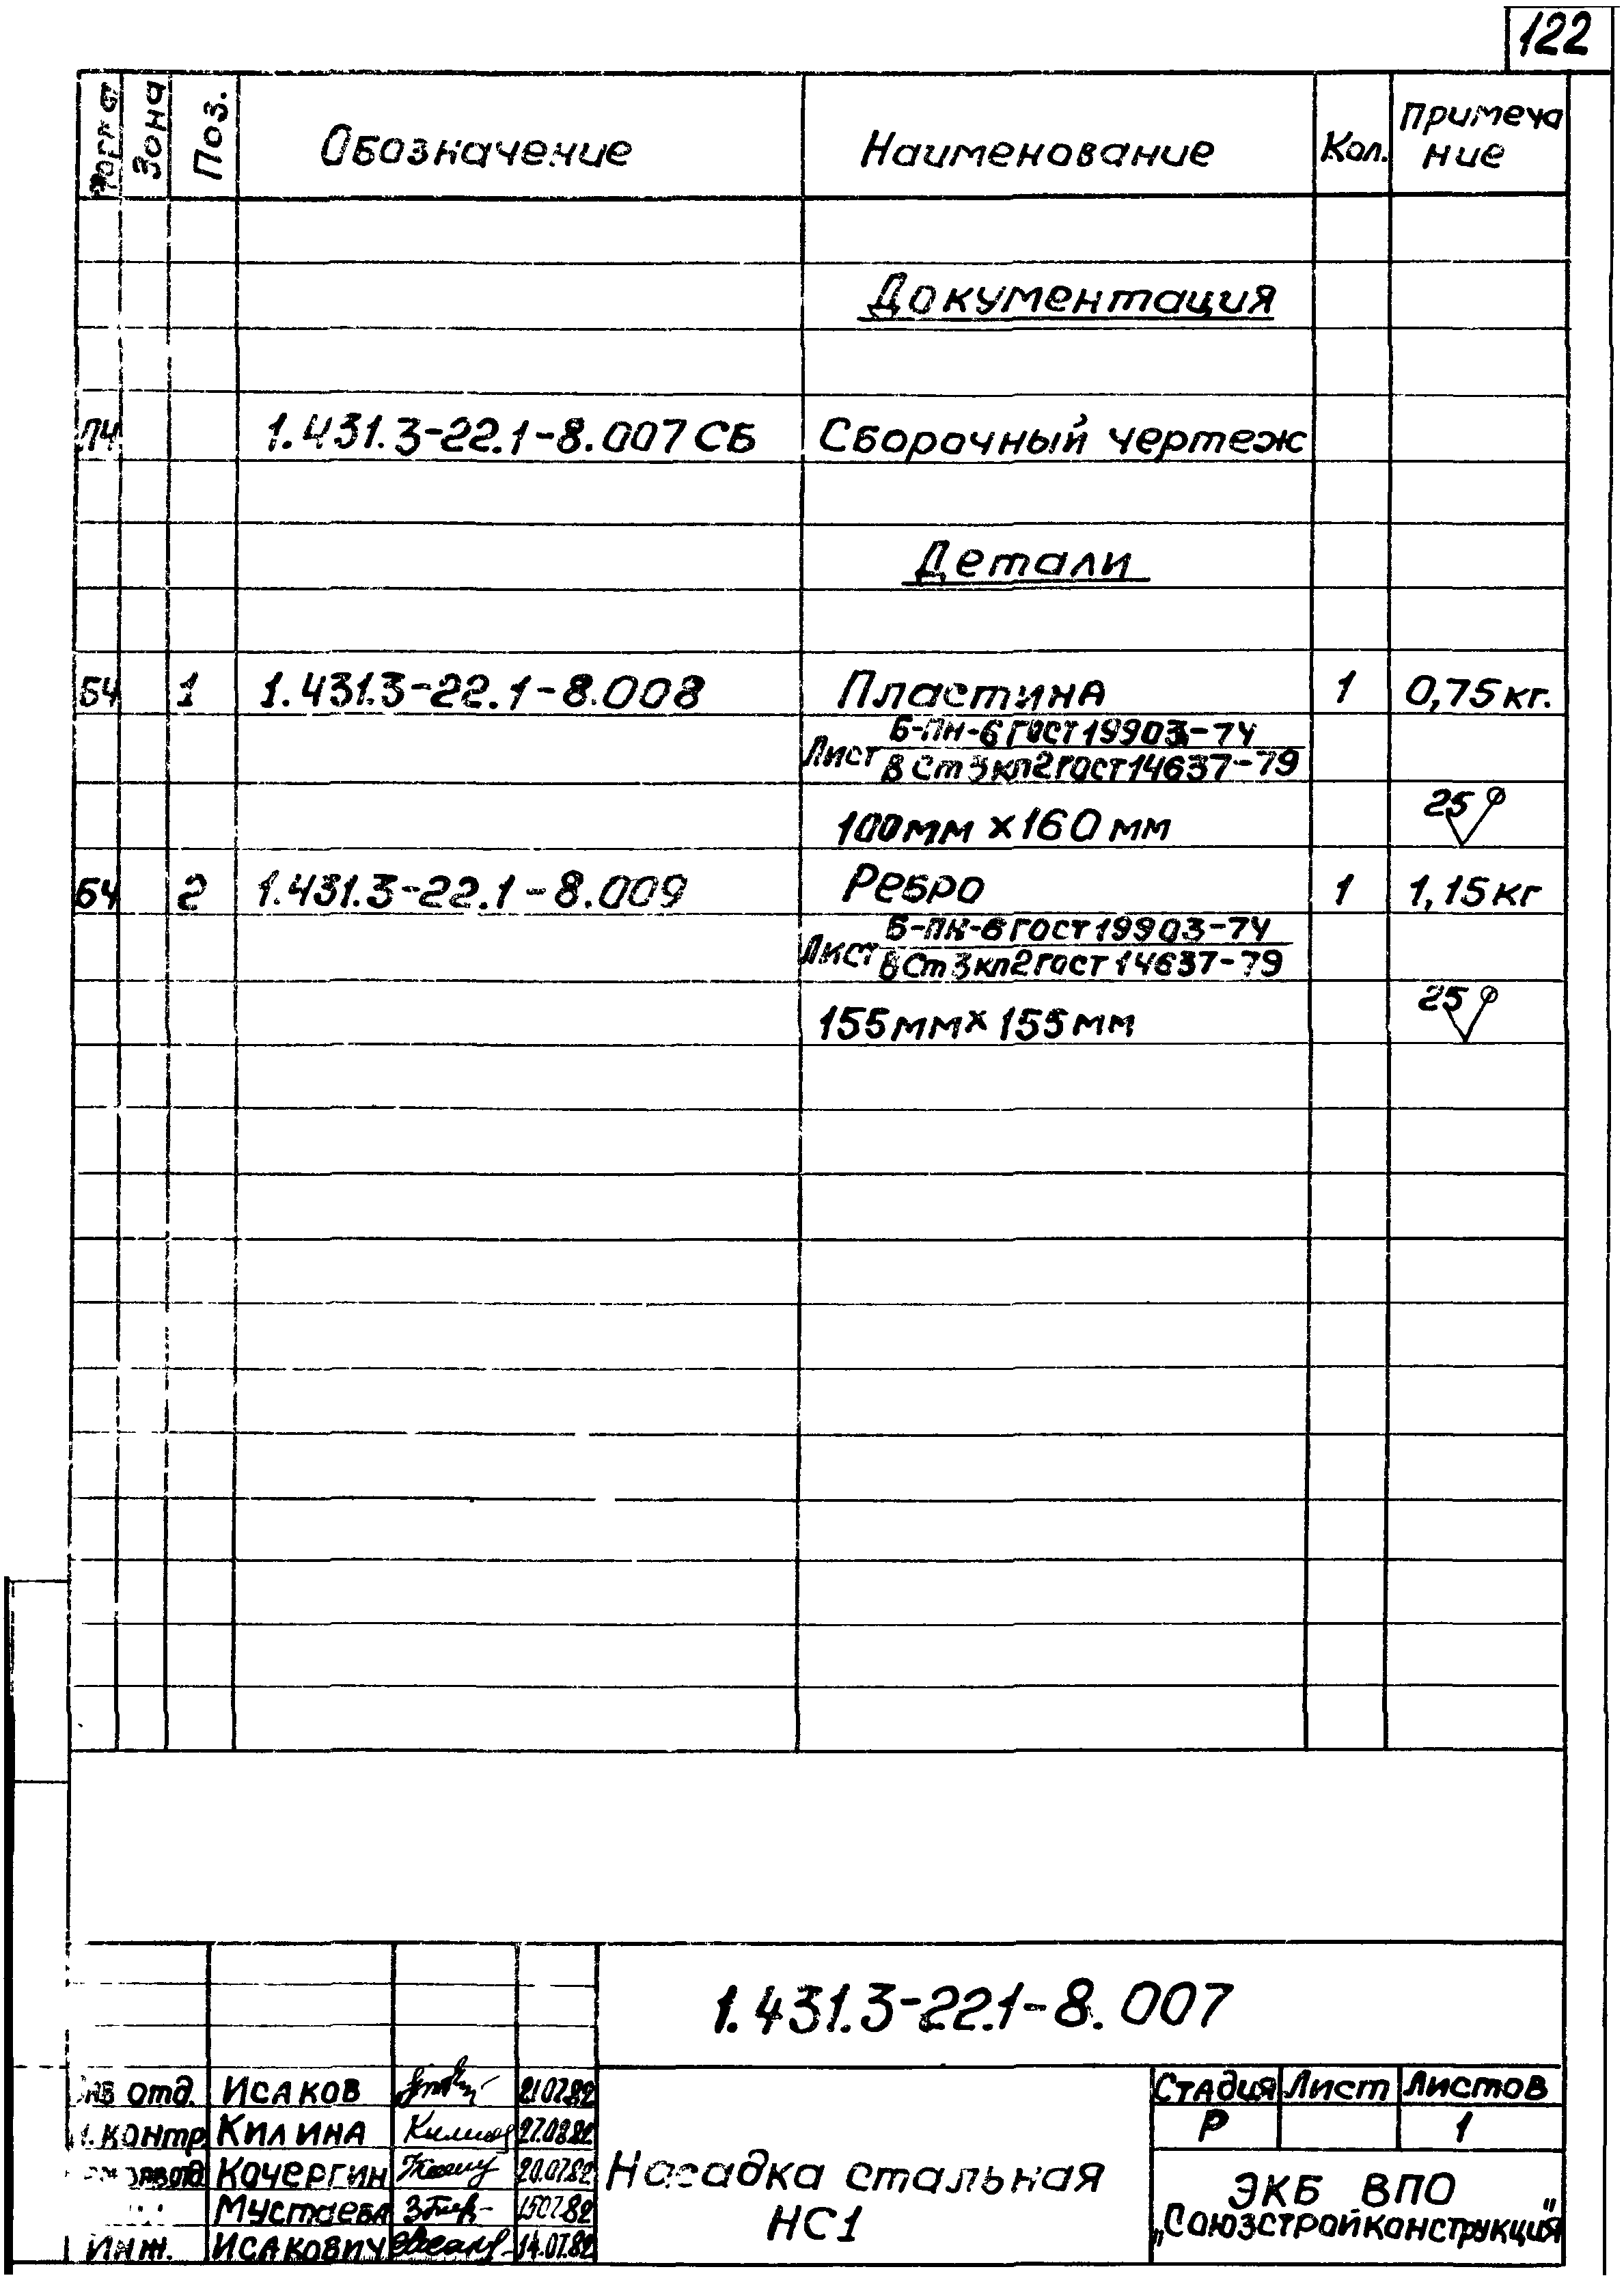 122
Формат Зона Поз. Обозначение Наименование Кол. Примечание
Документация
1.431.3-22.1-8.007 СБ Сборочный чертеж
Детали
БЧ 1 1.431.3-22.1-8.008 Пластина 1 0,75 кг.
Лист Б-ПН-6 ГОСТ 19903-74
ВСт3кп2 ГОСТ 14637-79
100мм х 160 мм 25
БЧ 2 1.431.3-22.1-8.009 Ребро 1 1,15 кг
Лист Б-ПН-6 ГОСТ 19903-74
ВСт3кп2 ГОСТ 14637-79
155мм х 155мм 25
1.431.3-22.1-8.007
отд. Исаков 21.07.82
контр. Килина 27.08.82
Кочергин 20.07.82
Мустаева 15.07.82
Инж. Исакович 14.07.82
Насадка стальная
НС1
Стадия Лист Листов
Р 1
ЭКБ ВПО
„Союзстройконструкция"